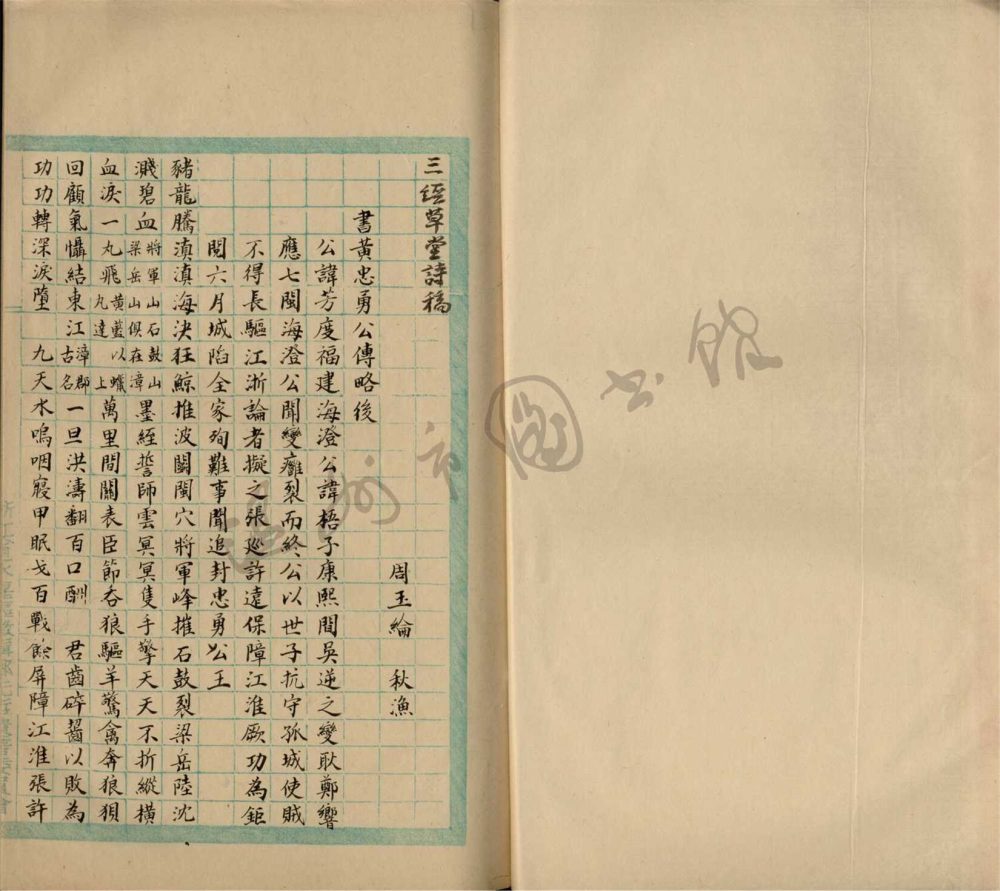 三經草堂詩稿
周玉綸 秋漁
書黃忠勇公傳略後
公諱芳度福建海澄公諱梧子康熙間吳逆之變耿鄭響
應七閩海澄公聞變癰裂而終公以世子抗守孤城使賊
不得長驅江浙論者擬之張巡許遠保障江淮厥功為鉅
閱六月城陷全家殉難事聞追封忠勇公王
豬龍騰滇滇海決狂鯨推波闢閩穴將軍峰摧石鼓裂梁岳陸沈
濺碧血將軍山石鼓山梁岳山俱在漳墨絰誓師雲冥冥隻手擎天天不折縱橫
血淚一丸飛黃藍以蠟丸達上萬里間關表臣節吞狼驅羊驚禽奔狼狽
回顧氣懾結東江漳郡古名一旦洪濤翻百口酬 君齒碎齧以敗為
功功轉深淚墮 九天水嗚咽寢甲眠戈百戰餘屏障江淮張許
溫州市圖書館